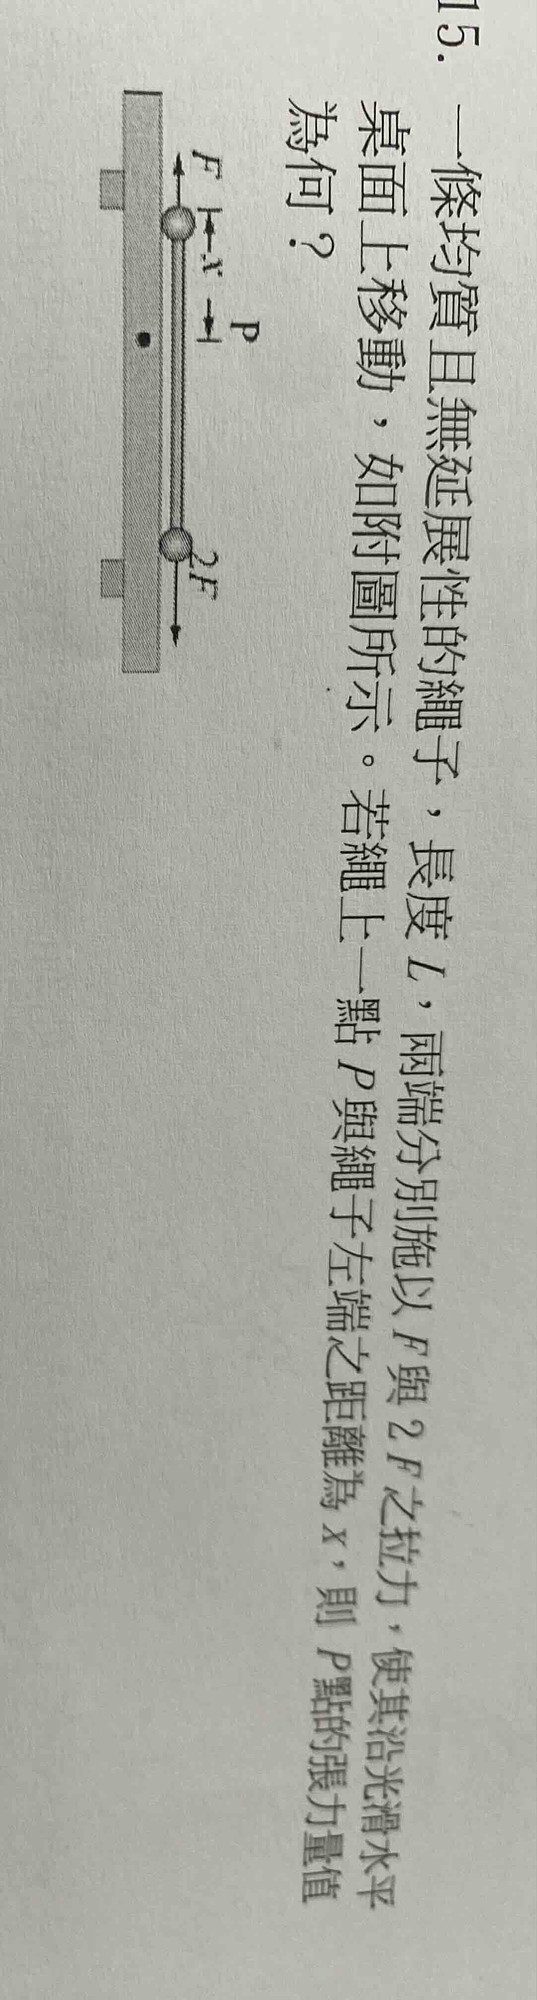 15. 一條均質且無延展性的繩子，長度 L，兩端分別施以 F 與 2F 之拉力，使其沿光滑水平
桌面上移動，如附圖所示。若繩上一點 P 與繩子左端之距離為 x，則 P 點的張力量值
為何？
P
F x 2F